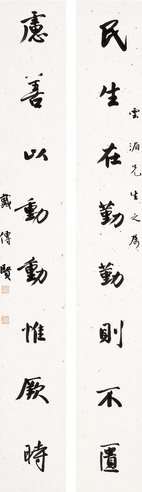 民生在勤勤則不匱
雲湄先生之屬
慮善以動動惟厥時
戴傳賢